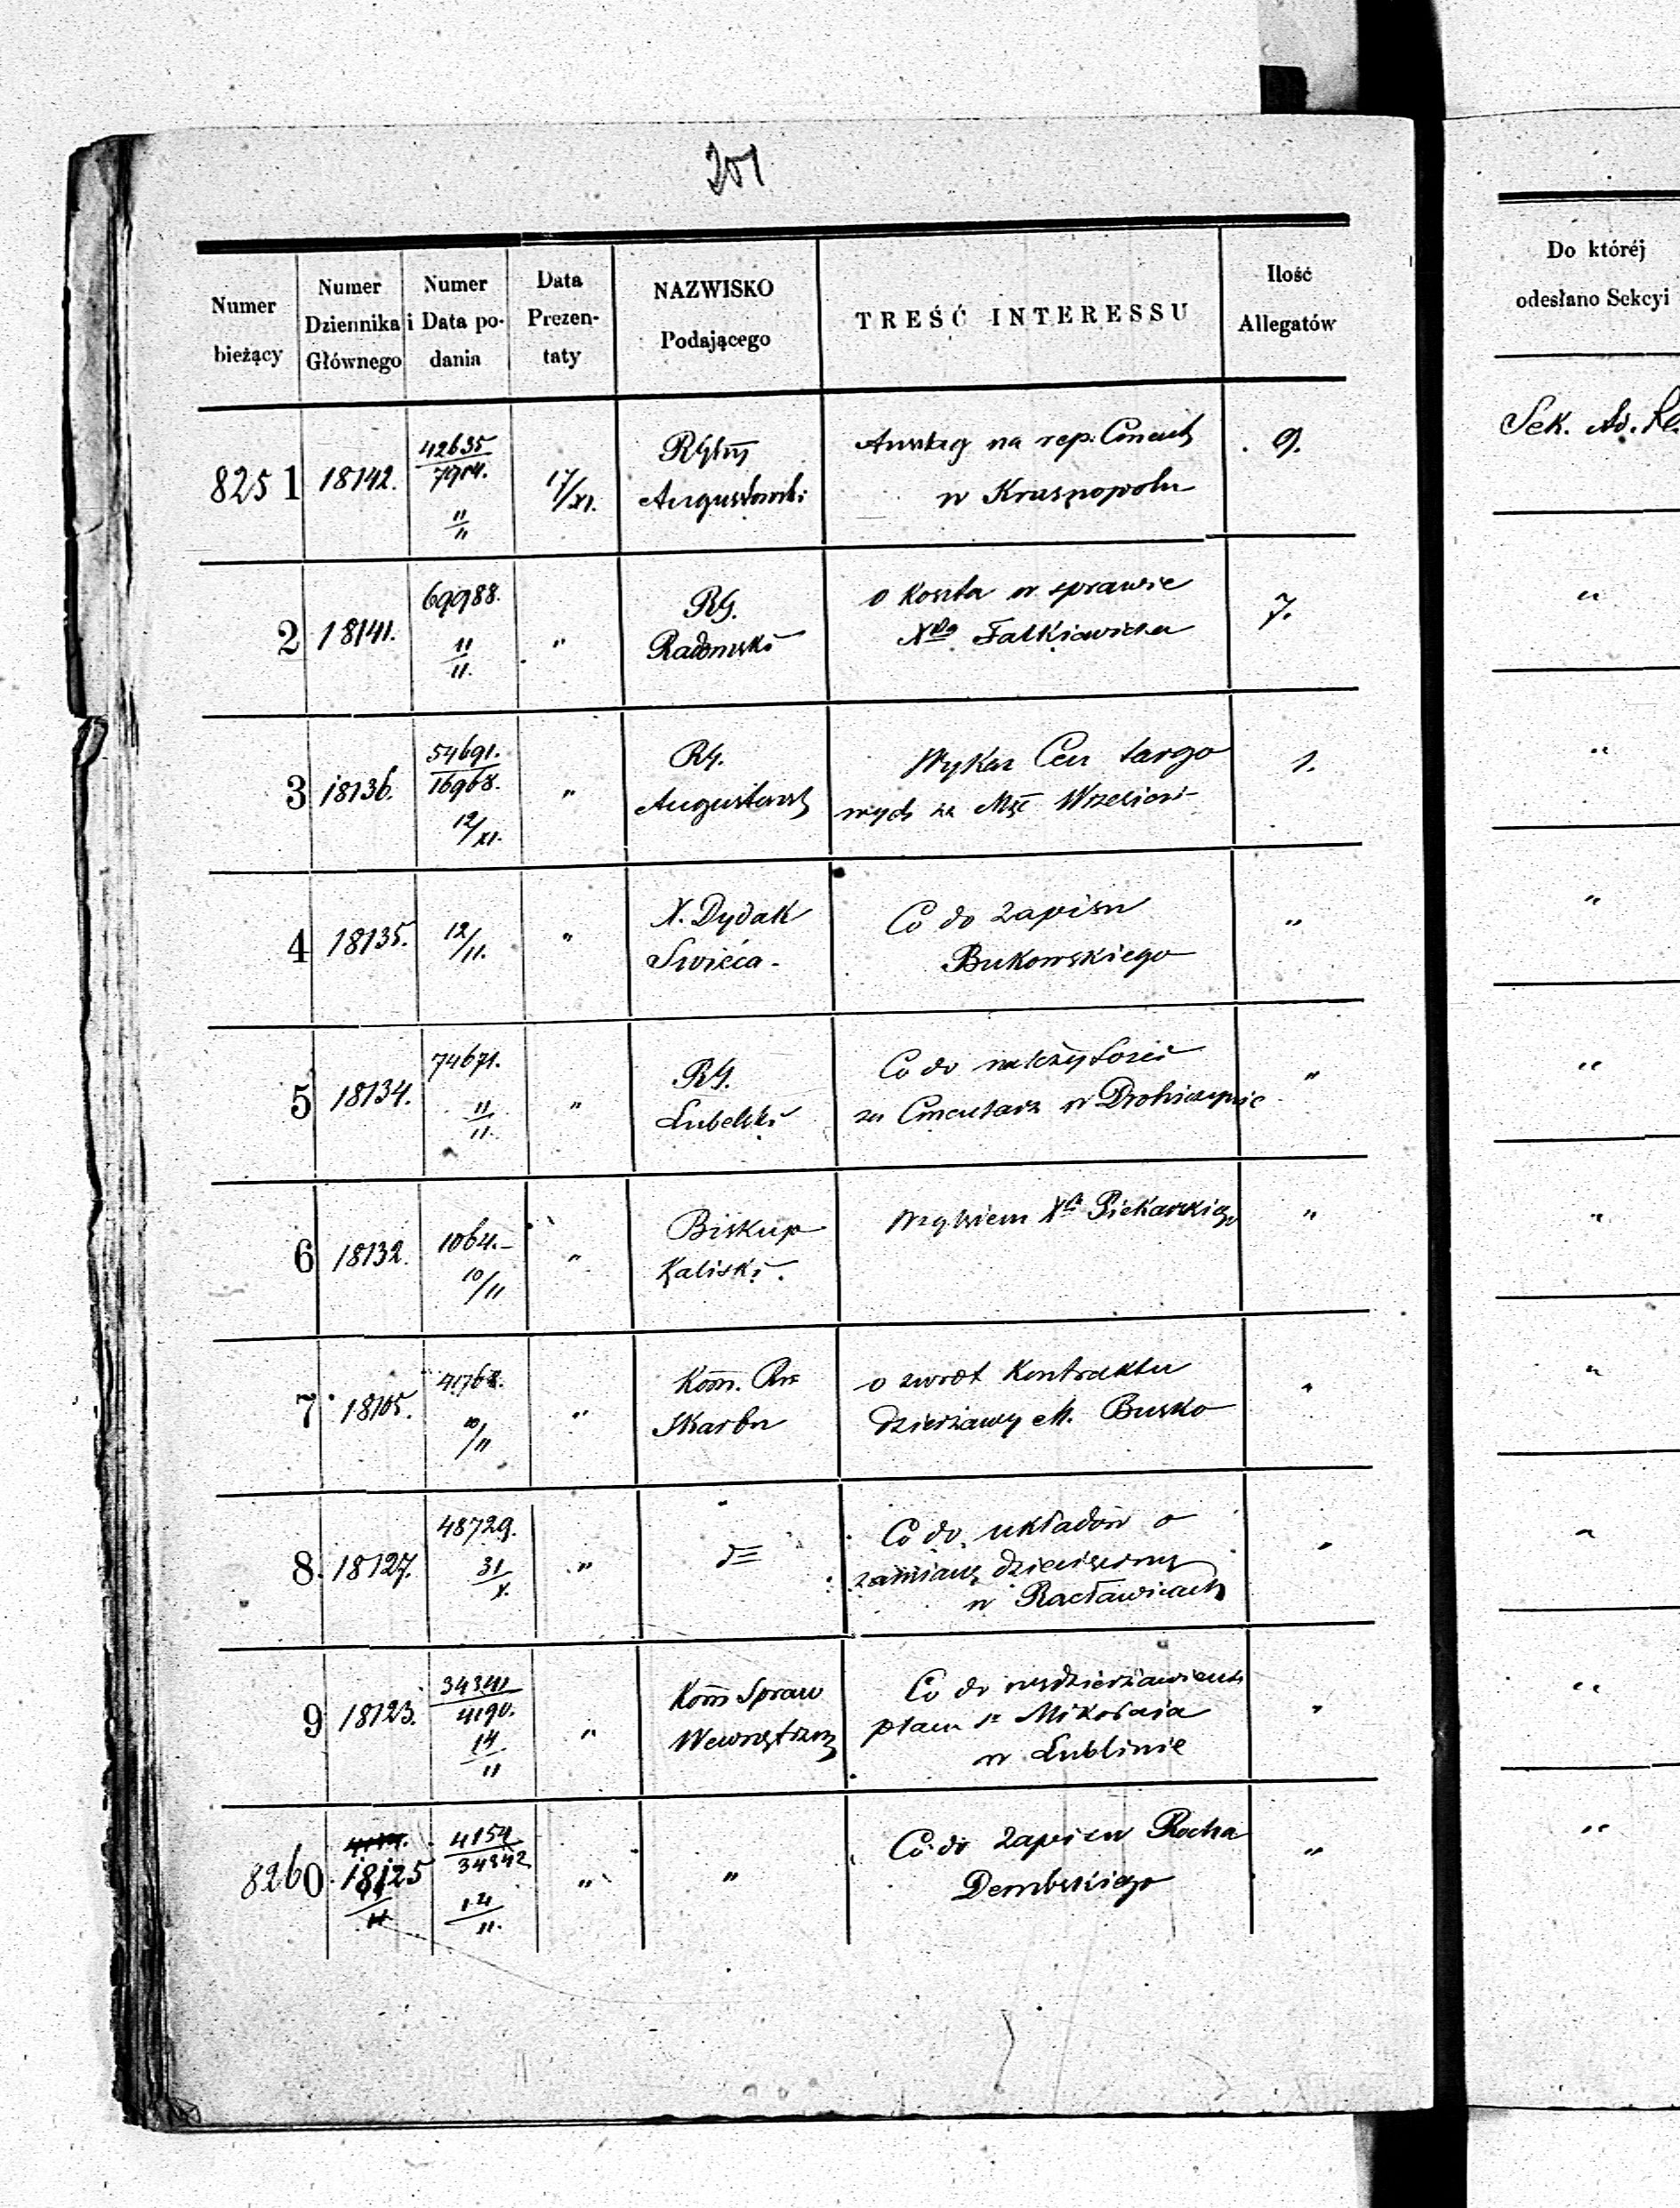 201
Numer bieżący | Numer Dziennika Głównego | Numer i Data podania | Data Prezentaty | NAZWISKO Podającego | TREŚĆ INTERESSU | Ilość Allegatów | Do któréj odesłano Sekcyi
8251 | 18142. | 42635 / 7914. 11/11 | 17/XI. | Augustowski | na rep. w Krasnopolu | 9. | Sek.
2 | 18141. | 69988. 11/11. | " | RG. Radomski | o koszta w sprawie Xdza Falkiewicza | 7. | "
3 | 18136. | 54691. / 16968. 12/XI. | " | RG. Augustowsk | Wykaz Cen targo wych za Msc Wrzesień | 1. | "
4 | 18135. | 12/11. | " | X. Dydak Swięca - | Co do zapisu Bukowskiego | " | "
5 | 18134. | 74671. 11/11. | " | RG. Lubelski | Co do należytości za Cmentarz w Drohiczynie | " | "
6 | 18132. | 1064.- 10/11 | " | Biskup Kaliski. | względem Xa Piekarskiego | " | "
7 | 18105. | 41768. 10/11 | " | Kom̄. Skarbu | o zwrot Kontraktu dzierżawy M. Busko | " | "
8. | 18127. | 48729. 31/X. | " | d | Co do układów o zamianę dziesięciny w Racławicach | " | "
9 | 18123. | 34341 / 4190. 14/11 | " | Kom̄ Spraw Wewnętrzn | Co do wydzierżawienia placu Sgo Mikołaja w Lublinie | " | "
8260 | 18125 | 4154 / 34342 14/11. | " | " | Co do zapisu Rocha Dembskiego | " | "